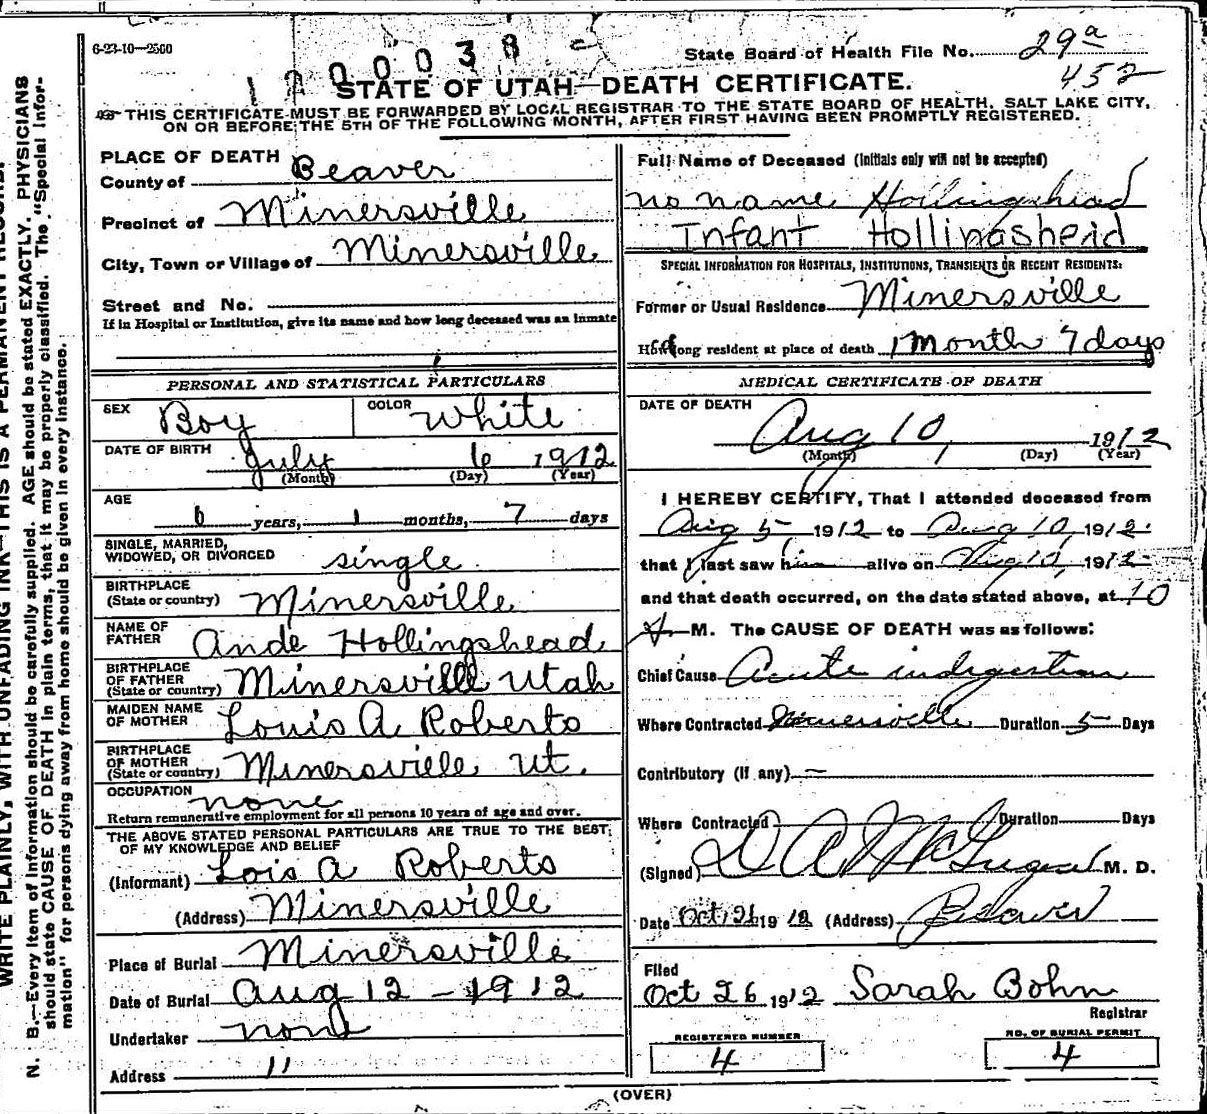 6-23-10—2500
State Board of Health File No. 29a
452
1200038
STATE OF UTAH—DEATH CERTIFICATE.
THIS CERTIFICATE MUST BE FORWARDED BY LOCAL REGISTRAR TO THE STATE BOARD OF HEALTH, SALT LAKE CITY,
ON OR BEFORE THE 5TH OF THE FOLLOWING MONTH, AFTER FIRST HAVING BEEN PROMPTLY REGISTERED.
PLACE OF DEATH
County of Beaver
Precinct of Minersville
City, Town or Village of Minersville
Street and No.
If in Hospital or Institution, give its name and how long deceased was an inmate
PERSONAL AND STATISTICAL PARTICULARS
SEX Boy
COLOR White
DATE OF BIRTH July 6 1912
(Month) (Day) (Year)
AGE
0 years, 1 months, 7 days
SINGLE, MARRIED,
WIDOWED, OR DIVORCED single
BIRTHPLACE
(State or country) Minersville
NAME OF
FATHER Ande Hollingshead
BIRTHPLACE
OF FATHER
(State or country) Minersville Utah
MAIDEN NAME
OF MOTHER Louis A Roberts
BIRTHPLACE
OF MOTHER
(State or country) Minersville Ut.
OCCUPATION none
Return remunerative employment for all persons 10 years of age and over.
THE ABOVE STATED PERSONAL PARTICULARS ARE TRUE TO THE BEST
OF MY KNOWLEDGE AND BELIEF
(Informant) Lois A Roberts
(Address) Minersville
Place of Burial Minersville
Date of Burial Aug 12 - 1912
Undertaker none
Address 11
Full Name of Deceased (Initials only will not be accepted)
no name Hollingshead
Infant Hollingsheid
SPECIAL INFORMATION FOR HOSPITALS, INSTITUTIONS, TRANSIENTS OR RECENT RESIDENTS:
Former or Usual Residence Minersville
How long resident at place of death 1 Month 7 days
MEDICAL CERTIFICATE OF DEATH
DATE OF DEATH
Aug 10, 1912
(Month) (Day) (Year)
I HEREBY CERTIFY, That I attended deceased from
Aug 5, 1912 to Aug 10, 1912
that I last saw him alive on Aug 10, 1912
and that death occurred, on the date stated above, at 10
A M. The CAUSE OF DEATH was as follows:
Chief Cause Acute indigestion
Where Contracted Minersville Duration 5 Days
Contributory (if any) —
Where Contracted Duration Days
(Signed) D A M. D.
Date Oct, 26 1912 (Address) Beaver
Filed
Oct 26 1912 Sarah Bohn
Registrar
REGISTERED NUMBER
4
NO. OF BURIAL PERMIT
4
(OVER)
WRITE PLAINLY, WITH UNFADING INK—THIS IS A PERMANENT RECORD.
N. B.—Every item of information should be carefully supplied. AGE should be stated EXACTLY. PHYSICIANS
should state CAUSE OF DEATH in plain terms, that it may be properly classified. The "Special Infor-
mation" for persons dying away from home should be given in every instance.